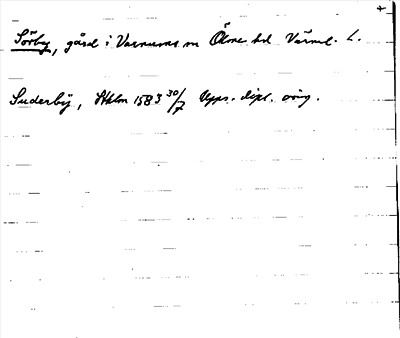 Sörby, gård i Varnums sn Ölme hd Värml. L.
Suderbÿ, Sthlm 1583 30/7 Upps. dipl. orig.